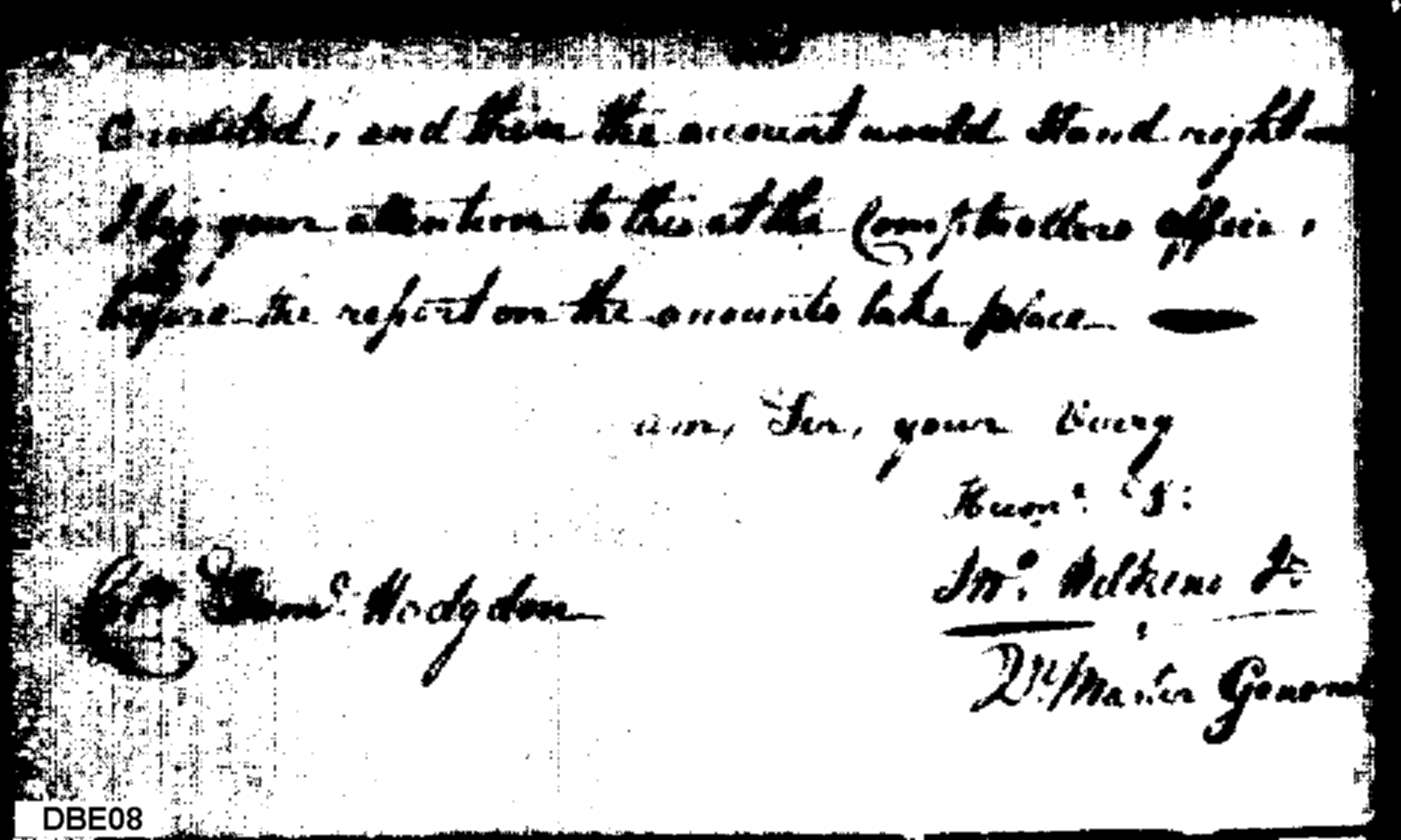 Credited, and then the account would Stand right —
I beg your attention to this at the Comptrollers office,
before the report on the accounts take place —
am, Sir, your Very
Humᵉ. S:
Colº Samˡ. Hodgdon
Jnº. Wilkins Jr
Qr. Master General
DBE08